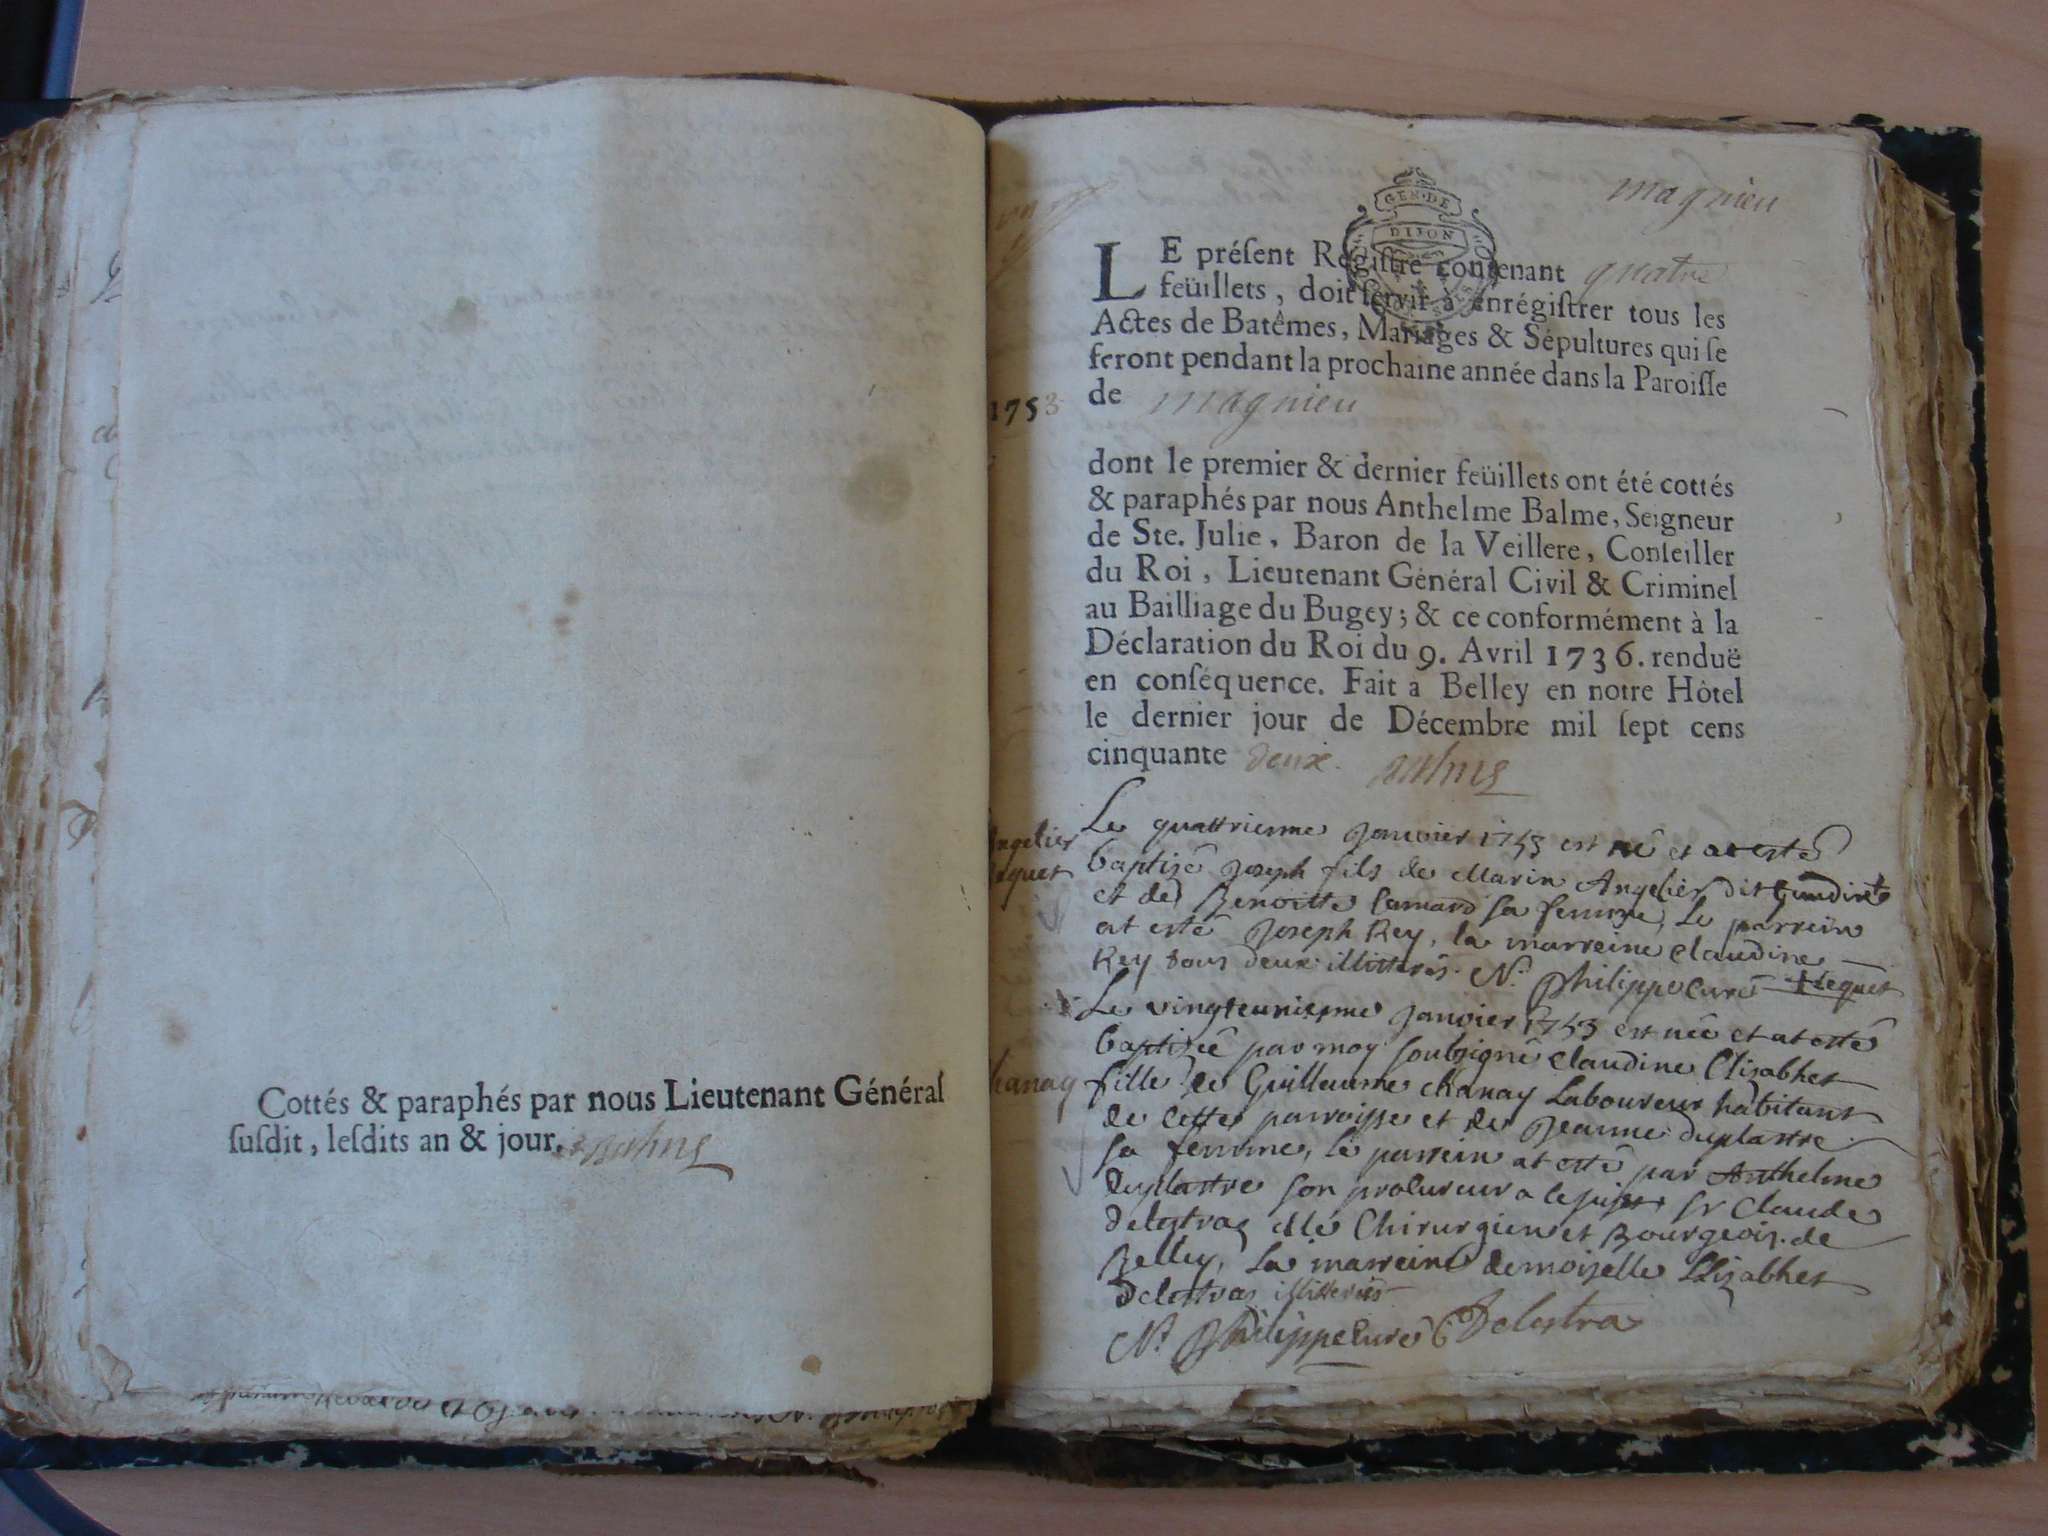 Cottés & paraphés par nous Lieutenant Général
susdit, lesdits an & jour.
magnieu
GEN. DE
DIJON
LE présent Registre contenant quatre
feüillets, doit servir à enrégistrer tous les
Actes de Batêmes, Mariages & Sépultures qui se
feront pendant la prochaine année dans la Paroisse
de magnieu
1753
dont le premier & dernier feüillets ont été cottés
& paraphés par nous Anthelme Balme, Seigneur
de Ste. Julie, Baron de la Veillere, Conseiller
du Roi, Lieutenant Général Civil & Criminel
au Bailliage du Bugey; & ce conformément à la
Déclaration du Roi du 9. Avril 1736. renduë
en conséquence. Fait a Belley en notre Hôtel
le dernier jour de Décembre mil sept cens
cinquante deux. Balme
Le quattrieme Janvier 1753 est né et at esté
baptisé Joseph fils de Marin Angelier dit
et de Benoitte Camard sa femme, le parrein
at esté Joseph Rey, la marreine Claudine
Rey tous deux illitterés. N. Philippe Curé
Le vingteunieme Janvier 1753 est née et at esté
baptizée par moy soubsigné Claudine Elisabhet
fille de Guillaume Chanay Laboureur habitant
de cette parroisse et de Jeanne duplastre
sa femme, le parrein at esté par Anthelme
duplastre son procureur a ce sujet sr Claude
Delestraz Me Chirurgien et Bourgeois de
Belley, La marreine demoiselle Elizabhet
Delestras illitterés
N. Philippe Curé C Delestra